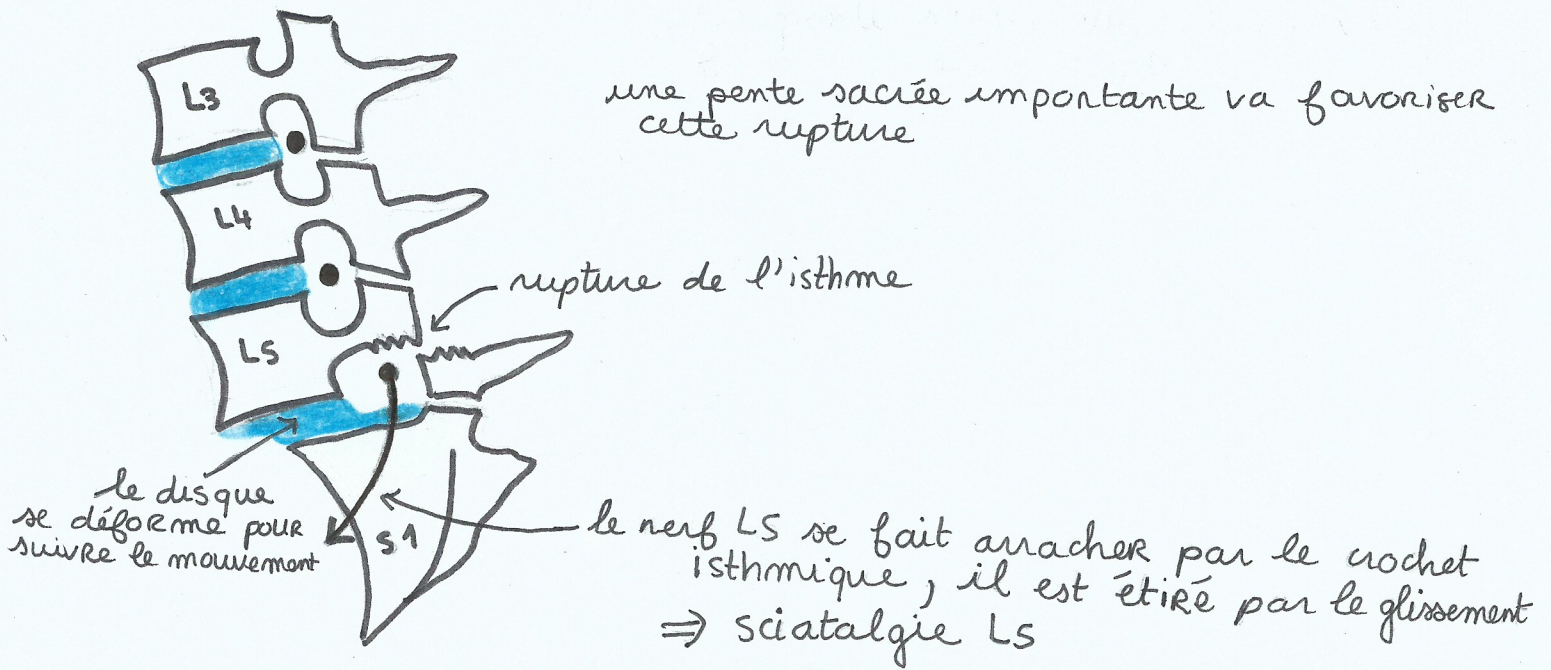 L3
une pente sacrée importante va favoriser
cette rupture
L4
rupture de l'isthme
L5
le disque
se déforme pour
suivre le mouvement
S1
le nerf L5 se fait arracher par le crochet
isthmique, il est étiré par le glissement
⇒ sciatalgie L5